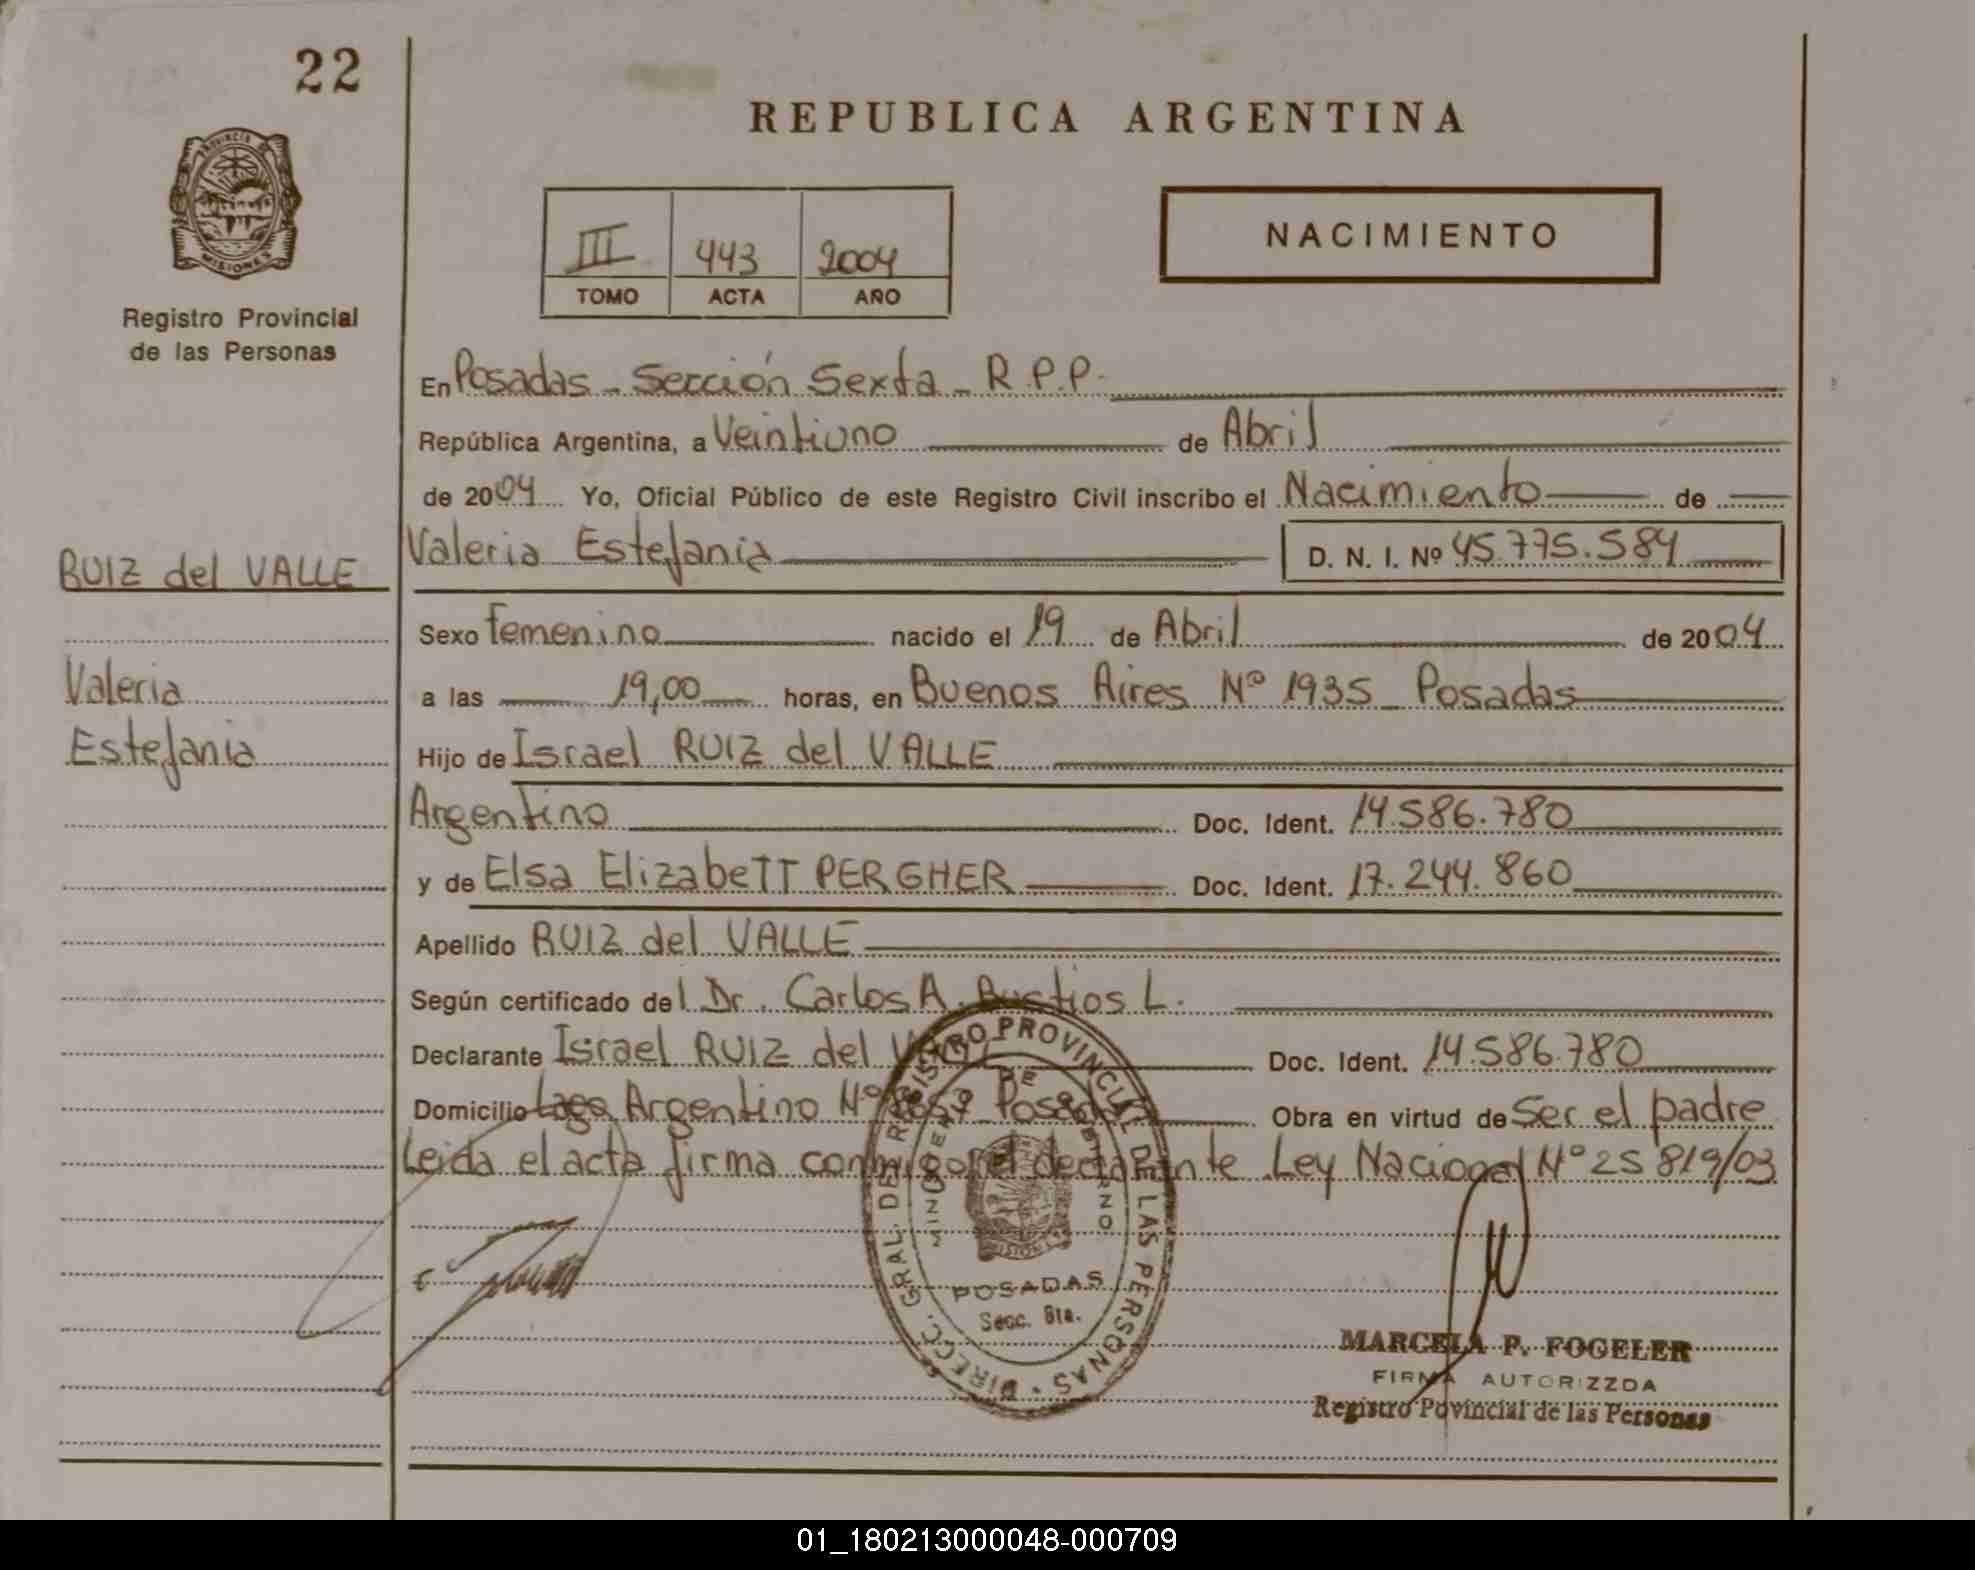 22
REPUBLICA ARGENTINA
PROVINCIA
MISIONES
Registro Provincial
de las Personas
III 443 2004
TOMO ACTA AÑO
NACIMIENTO
En Posadas - Sección Sexta - R.P.P.
República Argentina, a Veintiuno de Abril
de 2004 Yo, Oficial Público de este Registro Civil inscribo el Nacimiento de
Valeria Estefania D. N. I. Nº 45.775.584
RUIZ del VALLE
Valeria
Estefania
Sexo femenino nacido el 19 de Abril de 2004
a las 19,00 horas, en Buenos Aires Nº 1935 - Posadas
Hijo de Israel RUIZ del VALLE
Argentino Doc. Ident. 14.586.780
y de Elsa Elizabett PERGHER Doc. Ident. 17.244.860
Apellido RUIZ del VALLE
Según certificado del Dr. Carlos A. Bustios L.
Declarante Israel RUIZ del Doc. Ident. 14.586.780
Domicilio Lago Argentino Nº Posadas Obra en virtud de Ser el padre
Leida el acta firma conmigo el declarante Ley Nacional Nº 25819/03
DIRECC. GRAL. DE REGISTRO PROVINCIAL DE LAS PERSONAS
DE GOBIERNO
MISIONES
POSADAS
Secc. 6ta.
MARCELA P. FOGELER
FIRMA AUTORIZZDA
Registro Povincial de las Personas
01_180213000048-000709